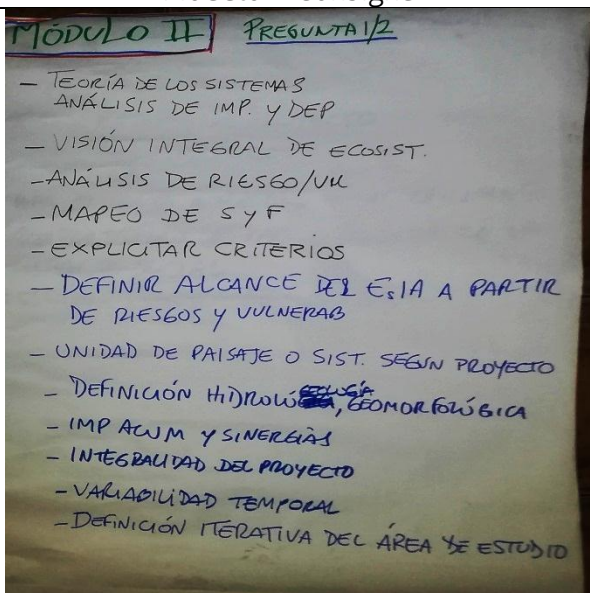 MÓDULO II PREGUNTA 1/2
- TEORÍA DE LOS SISTEMAS
ANÁLISIS DE IMP. Y DEP
- VISIÓN INTEGRAL DE ECOSIST.
- ANÁLISIS DE RIESGO/VUL
- MAPEO DE S y F
- EXPLICITAR CRITERIOS
- DEFINIR ALCANCE DEL EsIA A PARTIR
DE RIESGOS Y VULNERAB
- UNIDAD DE PAISAJE O SIST. SEGÚN PROYECTO
- DEFINICIÓN HIDROLÓ, GEOMORFOLÓGICA
- IMP ACUM Y SINERGIAS
- INTEGRALIDAD DEL PROYECTO
- VARIABILIDAD TEMPORAL
- DEFINICIÓN ITERATIVA DEL ÁREA DE ESTUDIO